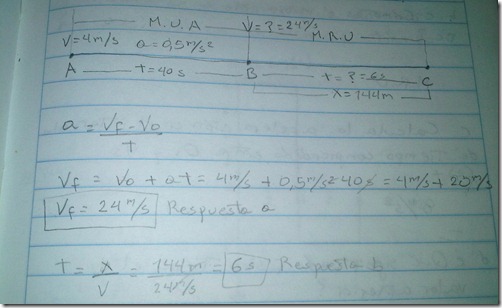 M.U.A V=?=24m/s M.R.U
V=4m/s a=0,5m/s²
A t=40s B t=?=6s C
x=144m
a = Vf-Vo/t
Vf = Vo + at = 4m/s + 0,5m/s²40s = 4m/s + 20m/s
Vf = 24m/s Respuesta a
t = x/v = 144m/24m/s = 6s Respuesta b